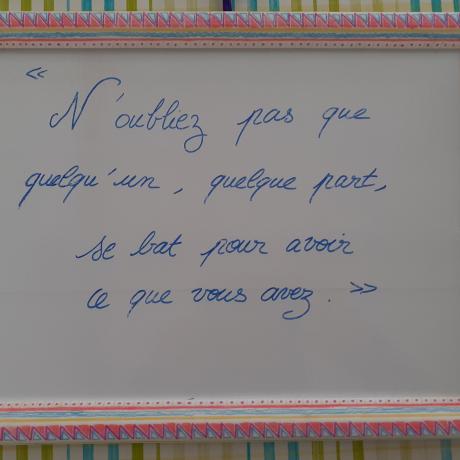 «
N'oubliez pas que
quelqu'un, quelque part,
se bat pour avoir
ce que vous avez. »